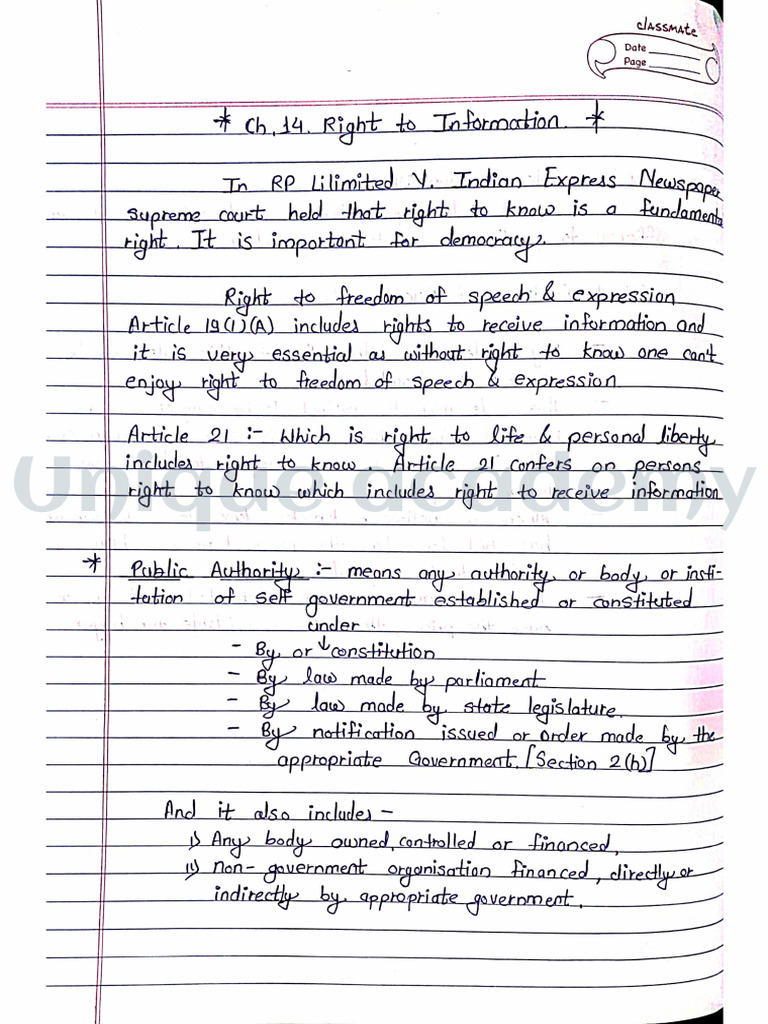 classmate
Date
Page
* Ch. 14. Right to Information. *
In RP Lilimited V. Indian Express Newspaper
supreme court held that right to know is a fundamental
right. It is important for democracy.
Right to freedom of speech & expression
Article 19(1)(A) includes rights to receive information and
it is very essential as without right to know one can't
enjoy right to freedom of speech & expression
Article 21 :- Which is right to life & personal liberty
includes right to know. Article 21 confers on persons
right to know which includes right to receive information
Unique academy
* Public Authority :- means any authority or body or insti-
tation of self government established or constituted
under
- By or ↓ constitution
- By law made by parliament
- By law made by state legislature.
- By notification issued or order made by the
appropriate Government. [Section 2(h)]
And it also includes -
i) Any body owned, controlled or financed,
ii) non-government organisation financed, directly or
indirectly by appropriate government.